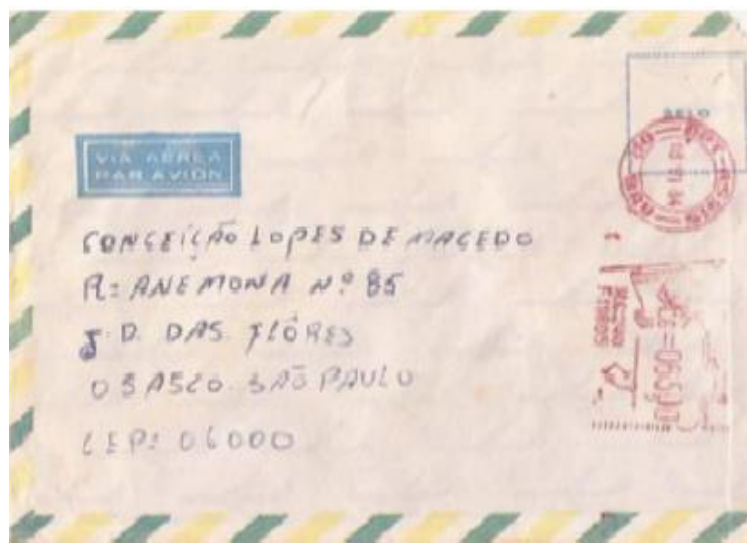 SELO
VIA AEREA
PAR AVION
CONCEIÇÃO LOPES DE MACEDO
R: ANEMONA Nº 85
J.D. DAS FLÔRES
OSASCO. SÃO PAULO
CEP: 06000